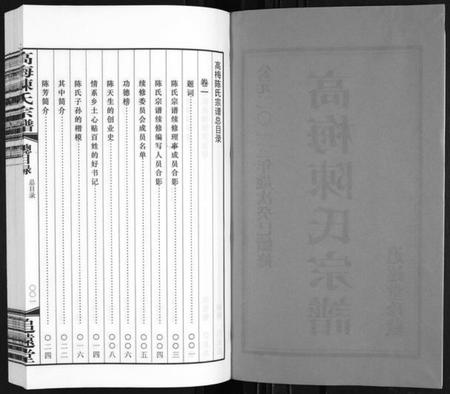 高梅陈氏宗谱总目录
卷一
题词……〇〇一
陈氏宗谱续修理事成员合影……〇〇三
陈氏宗谱续修编写人员合影……〇〇四
续修委员会成员名单……〇〇五
功德榜……〇〇六
陈天生的创业史……〇〇八
情系乡土心贴百姓的好书记……〇一四
陈氏子孙的楷模……〇一六
其中简介……〇二二
陈芳简介……〇二四
高梅陳氏宗譜
總目録
总目录
〇〇一
追遠堂
高梅陳氏宗譜